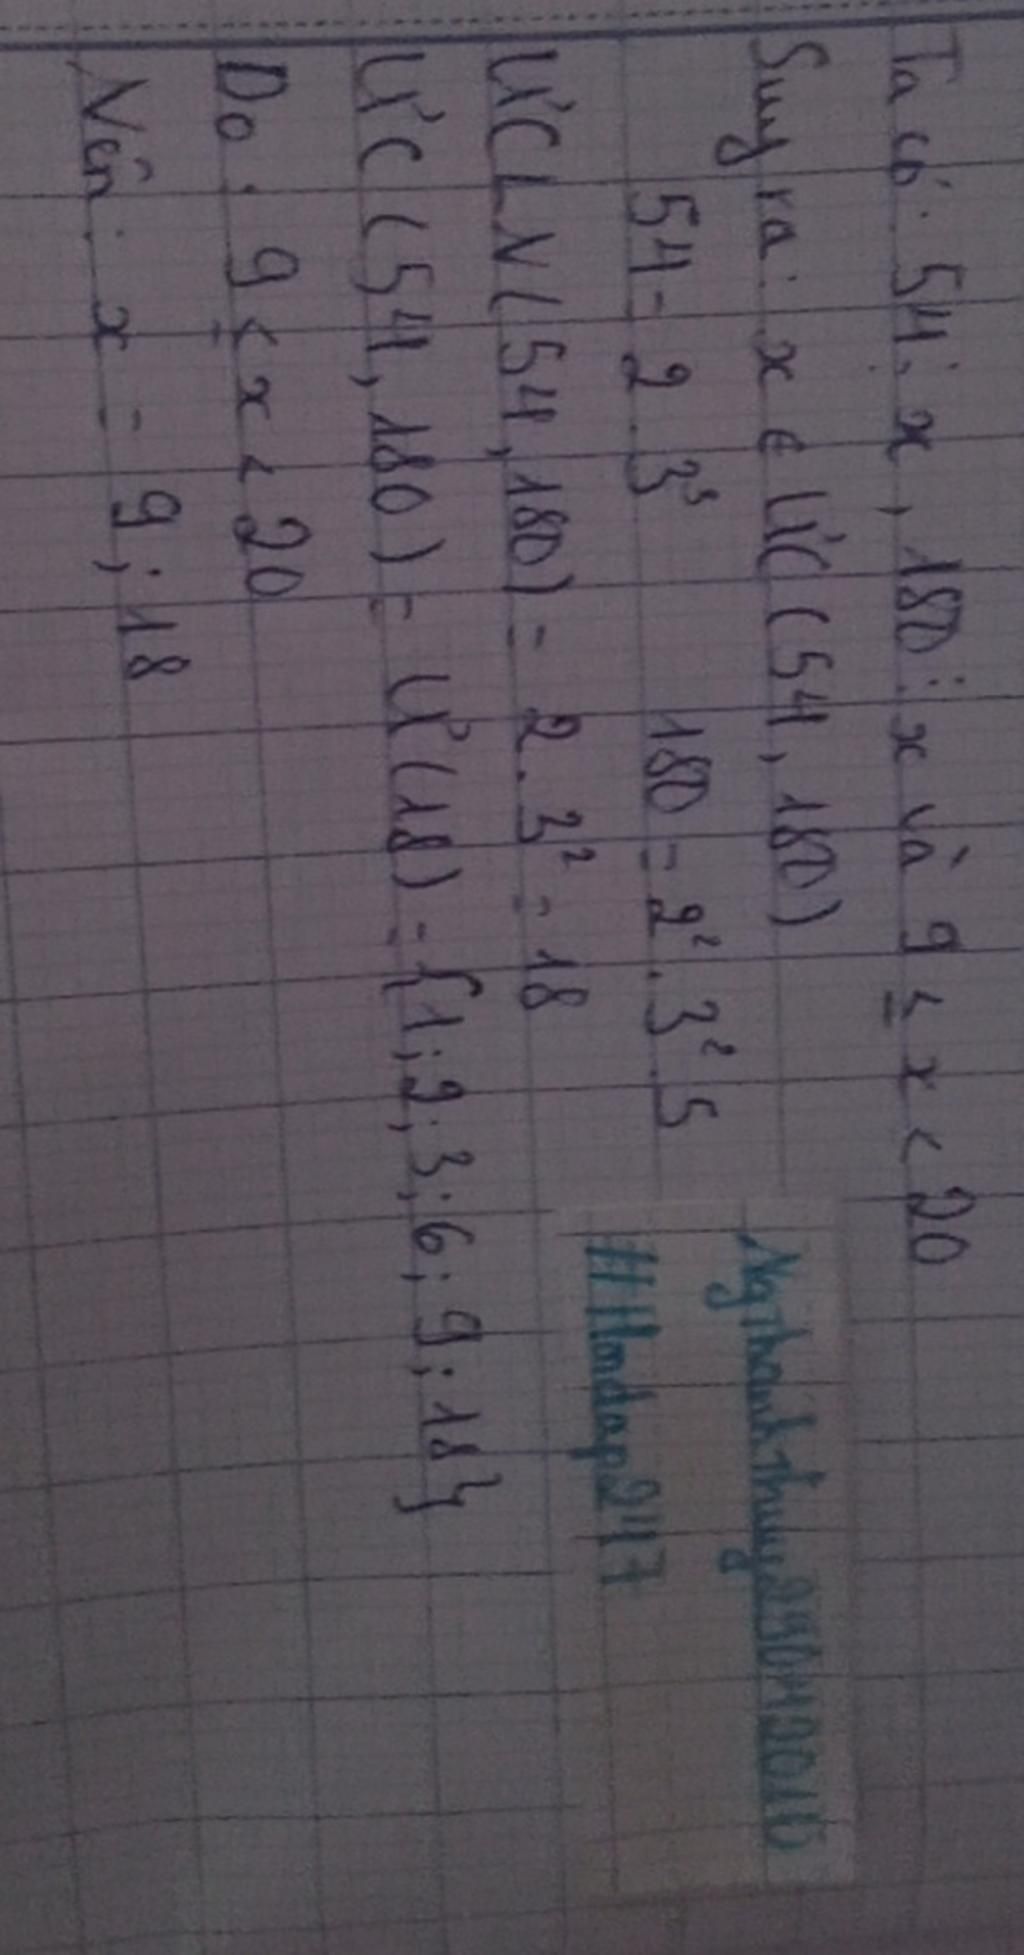 Ta có: 54 ⋮ x, 180 ⋮ x và 9 ≤ x < 20
Suy ra: x ∈ ƯC (54, 180)
54 = 2.3³ 180 = 2².3².5
ƯCLN (54, 180) = 2.3² = 18
ƯC (54, 180) = Ư(18) = {1; 2; 3; 6; 9; 18}
Do: 9 ≤ x < 20
Nên: x = 9; 18
# Hoidap247